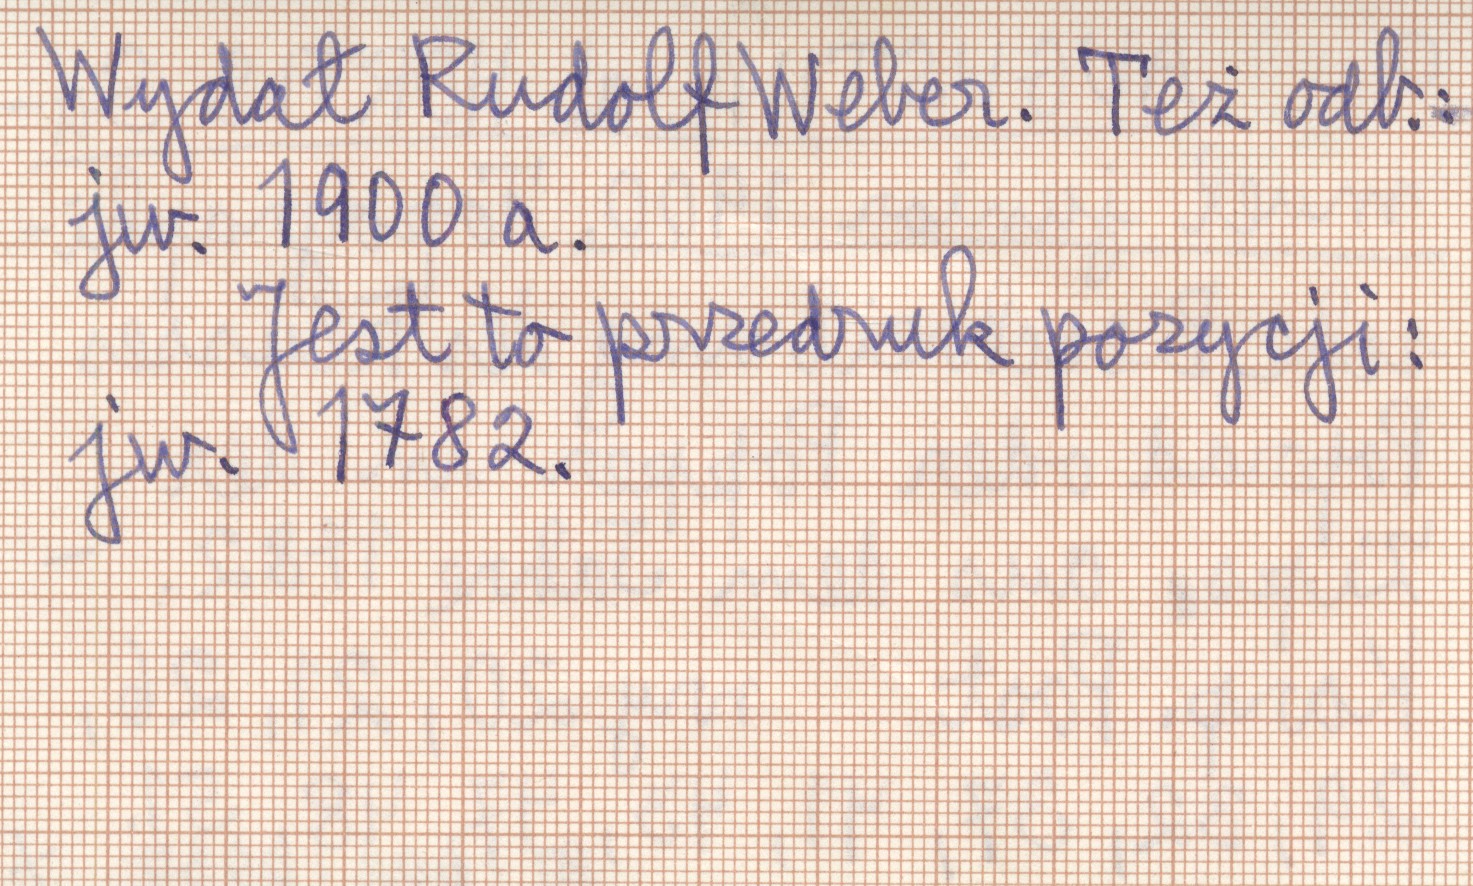 Wydał Rudolf Weber. Też odb.:
jw. 1900 a.
Jest to przedruk pozycji:
jw. 1782.